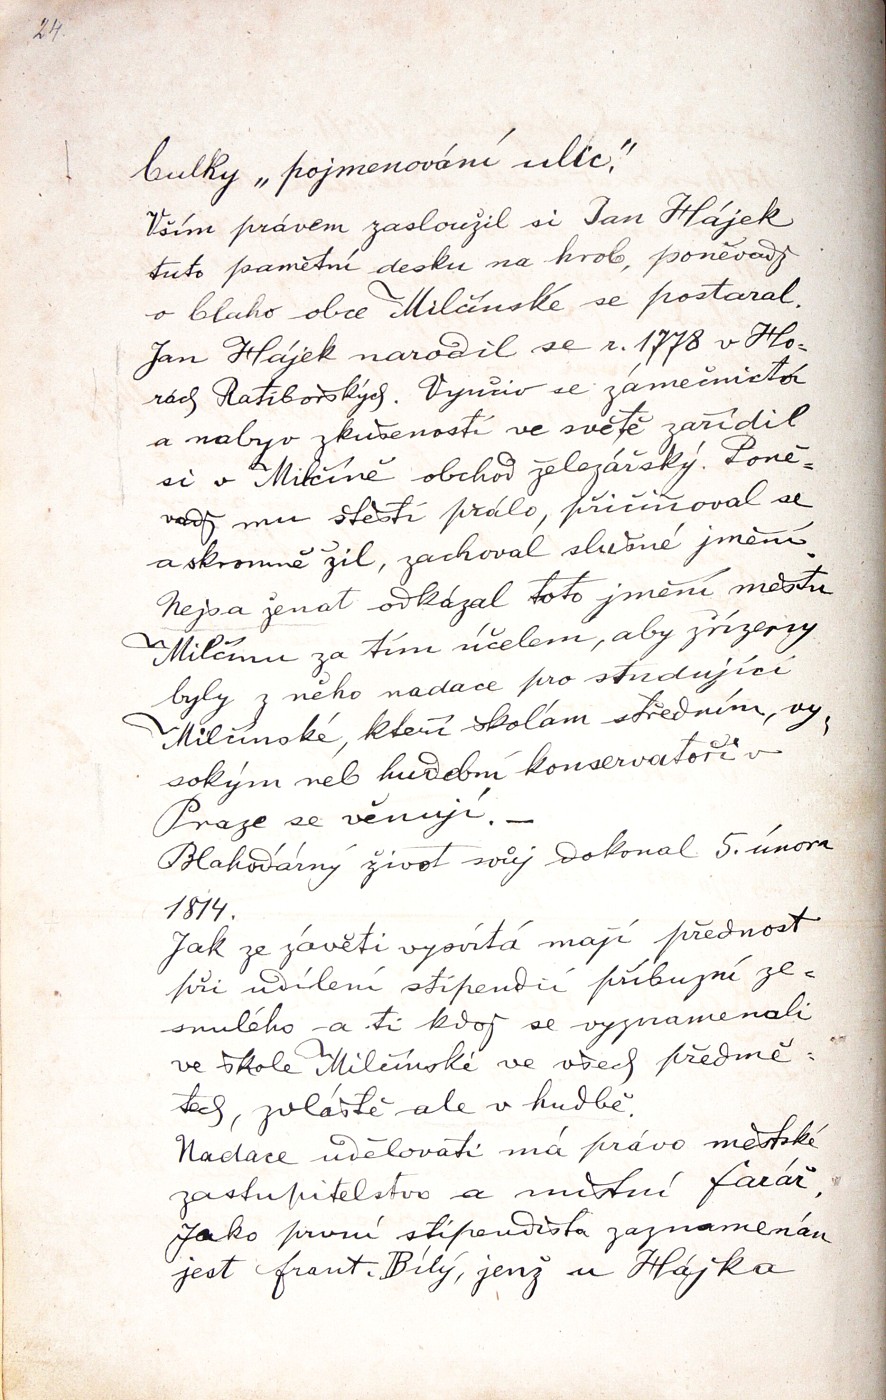 24.
bulky „pojmenování ulic."
Vším právem zasloužil si Jan Hájek
tuto pamětní desku na hrob, poněvadž
o blaho obce Milčínské se postaral.
Jan Hájek narodil se r. 1778 v Ho-
rách Ratibořských. Vyučiv se zámečnictví
a nabyv zkušeností ve světě zařídil
si v Milčíně obchod železářský. Poně-
vadž mu štěstí přálo, přičiňoval se
a skromně žil, zachoval slušné jmění.
Nejsa ženat odkázal toto jmění městu
Milčínu za tím účelem, aby zřízeny
byly z něho nadace pro studující
Milčínské, kteří školám středním, vy-
sokým neb hudební konservatoři v
Praze se věnují. —
Blahodárný život svůj dokonal 5. února
1814.
Jak ze závěti vysvítá mají přednost
při udílení stipendií příbuzní ze-
snulého a ti kdož se vyznamenali
ve škole Milčínské ve všech předmě-
tech, zvláště ale v hudbě.
Nadace udělovati má právo městské
zastupitelstvo a místní farář.
Jako první stipendista zaznamenán
jest Frant. Bílý, jenž u Hájka